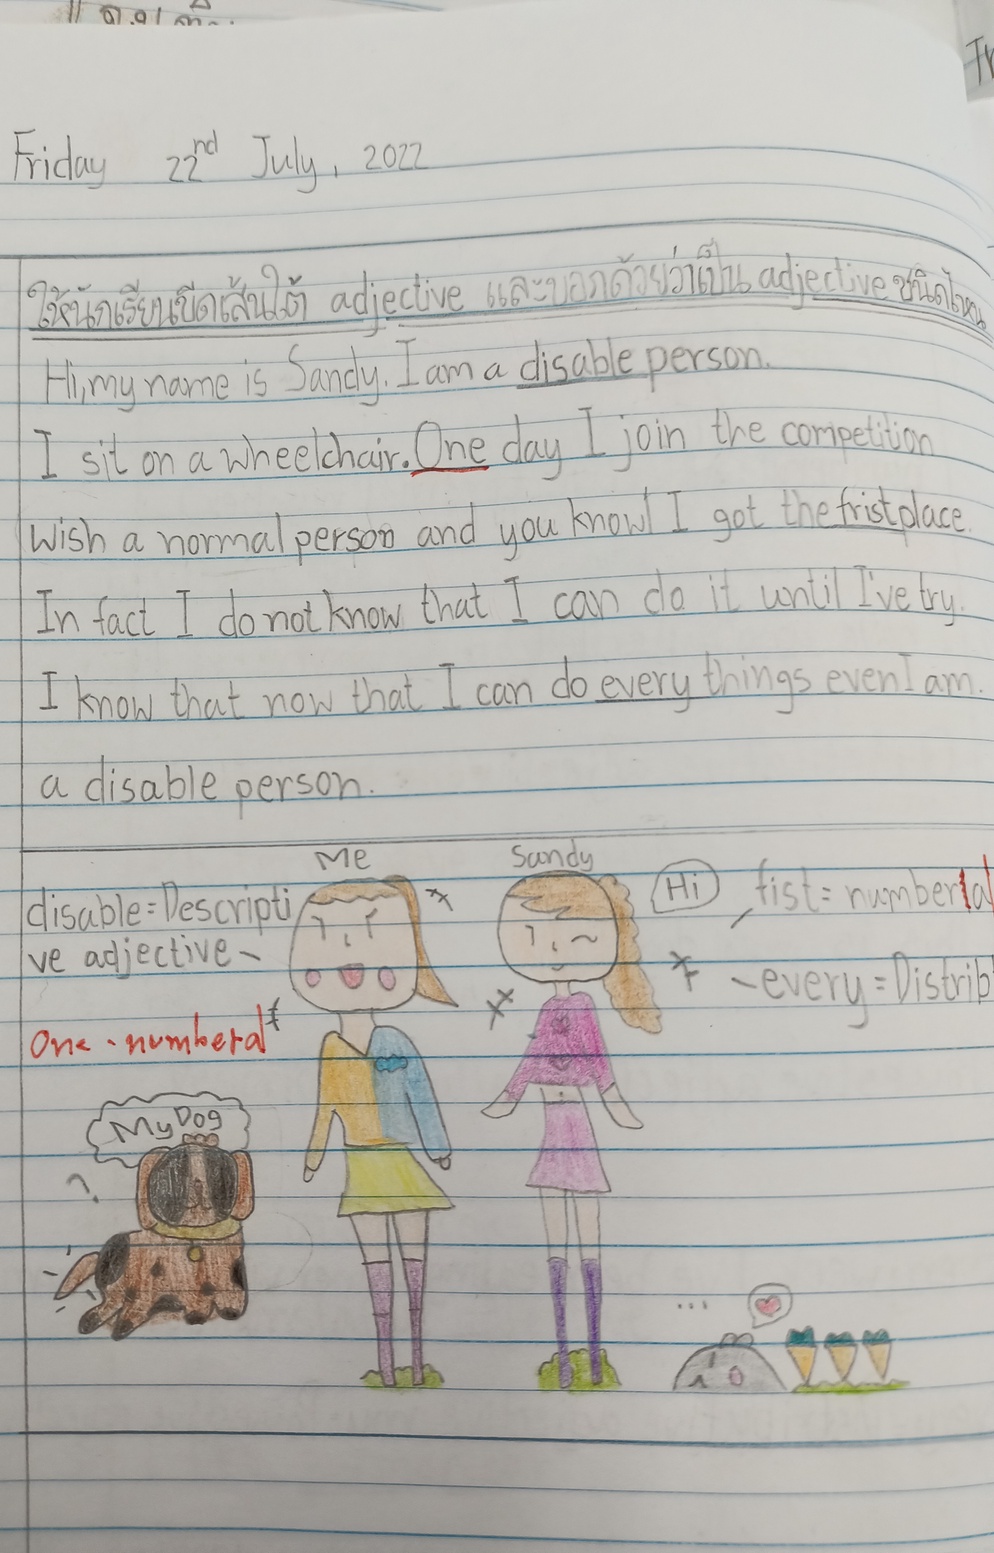 Friday 22nd July, 2022
ให้นักเรียนขีดเส้นใต้ adjective และบอกด้วยว่าเป็น adjective ชนิดไหน
Hi, my name is Sandy. I am a disable person.
I sit on a wheelchair. One day I join the competition
Wish a normal person and you know! I got the frist place.
In fact I do not know that I can do it until I've try.
I know that now that I can do every things even I am.
a disable person.
Me
Sandy
Hi
disable = Descripti
ve adjective ~
fist = numberal
~ every = Distrib
One - numberal
My Dog
?
...